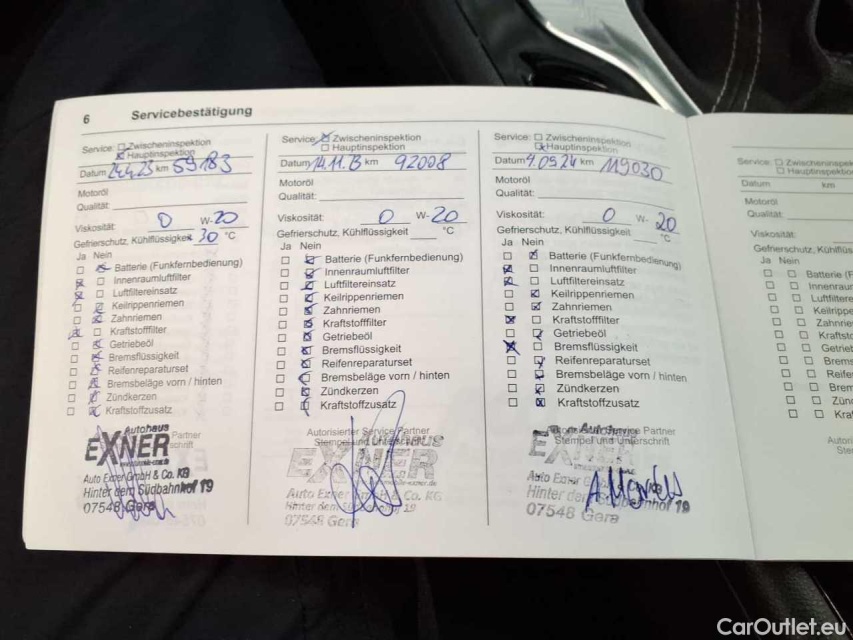 6 Servicebestätigung
Service: Zwischeninspektion
Hauptinspektion
Datum 24.4.23 km 59183
Motoröl
Qualität:
Viskosität: 0 W-20
Gefrierschutz, Kühlflüssigkeit 30 °C
Ja Nein
Batterie (Funkfernbedienung)
Innenraumluftfilter
Luftfiltereinsatz
Keilrippenriemen
Zahnriemen
Kraftstofffilter
Getriebeöl
Bremsflüssigkeit
Reifenreparaturset
Bremsbeläge vorn / hinten
Zündkerzen
Kraftstoffzusatz
Autohaus
EXNER
Partner
Auto Exner GmbH & Co. KG
Hinter dem Südbahnhof 19
07548 Gera
Service: Zwischeninspektion
Hauptinspektion
Datum 14.11. km 92008
Motoröl
Qualität:
Viskosität: 0 W-20
Gefrierschutz, Kühlflüssigkeit °C
Ja Nein
Batterie (Funkfernbedienung)
Innenraumluftfilter
Luftfiltereinsatz
Keilrippenriemen
Zahnriemen
Kraftstofffilter
Getriebeöl
Bremsflüssigkeit
Reifenreparaturset
Bremsbeläge vorn / hinten
Zündkerzen
Kraftstoffzusatz
Autorisierter Service Partner
Stempel und Unterschrift
EXNER
Auto Exner GmbH & Co. KG
Hinter dem Südbahnhof 19
07548 Gera
Service: Zwischeninspektion
Hauptinspektion
Datum 9.09.24 km 119030
Motoröl
Qualität:
Viskosität: 0 W- 20
Gefrierschutz, Kühlflüssigkeit °C
Ja Nein
Batterie (Funkfernbedienung)
Innenraumluftfilter
Luftfiltereinsatz
Keilrippenriemen
Zahnriemen
Kraftstofffilter
Getriebeöl
Bremsflüssigkeit
Reifenreparaturset
Bremsbeläge vorn / hinten
Zündkerzen
Kraftstoffzusatz
Service Partner
Stempel und Unterschrift
EXNER
Auto Exner GmbH & Co. KG
Hinter dem Südbahnhof 19
07548 Gera
Service: Zwischeninspektion
Hauptinspektion
Datum km
Motoröl
Qualität:
Viskosität:
Gefrierschutz, Kühlflüss
Ja Nein
Batterie (F
Innenraum
Luftfiltere
Keilripp
Zahnrie
Kraftst
Getrieb
Brems
Reife
Brem
Zün
Kra
Autori
Ste
CarOutlet.eu